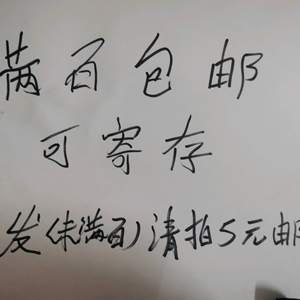 满百包邮
可寄存
发(未满百)请拍5元邮